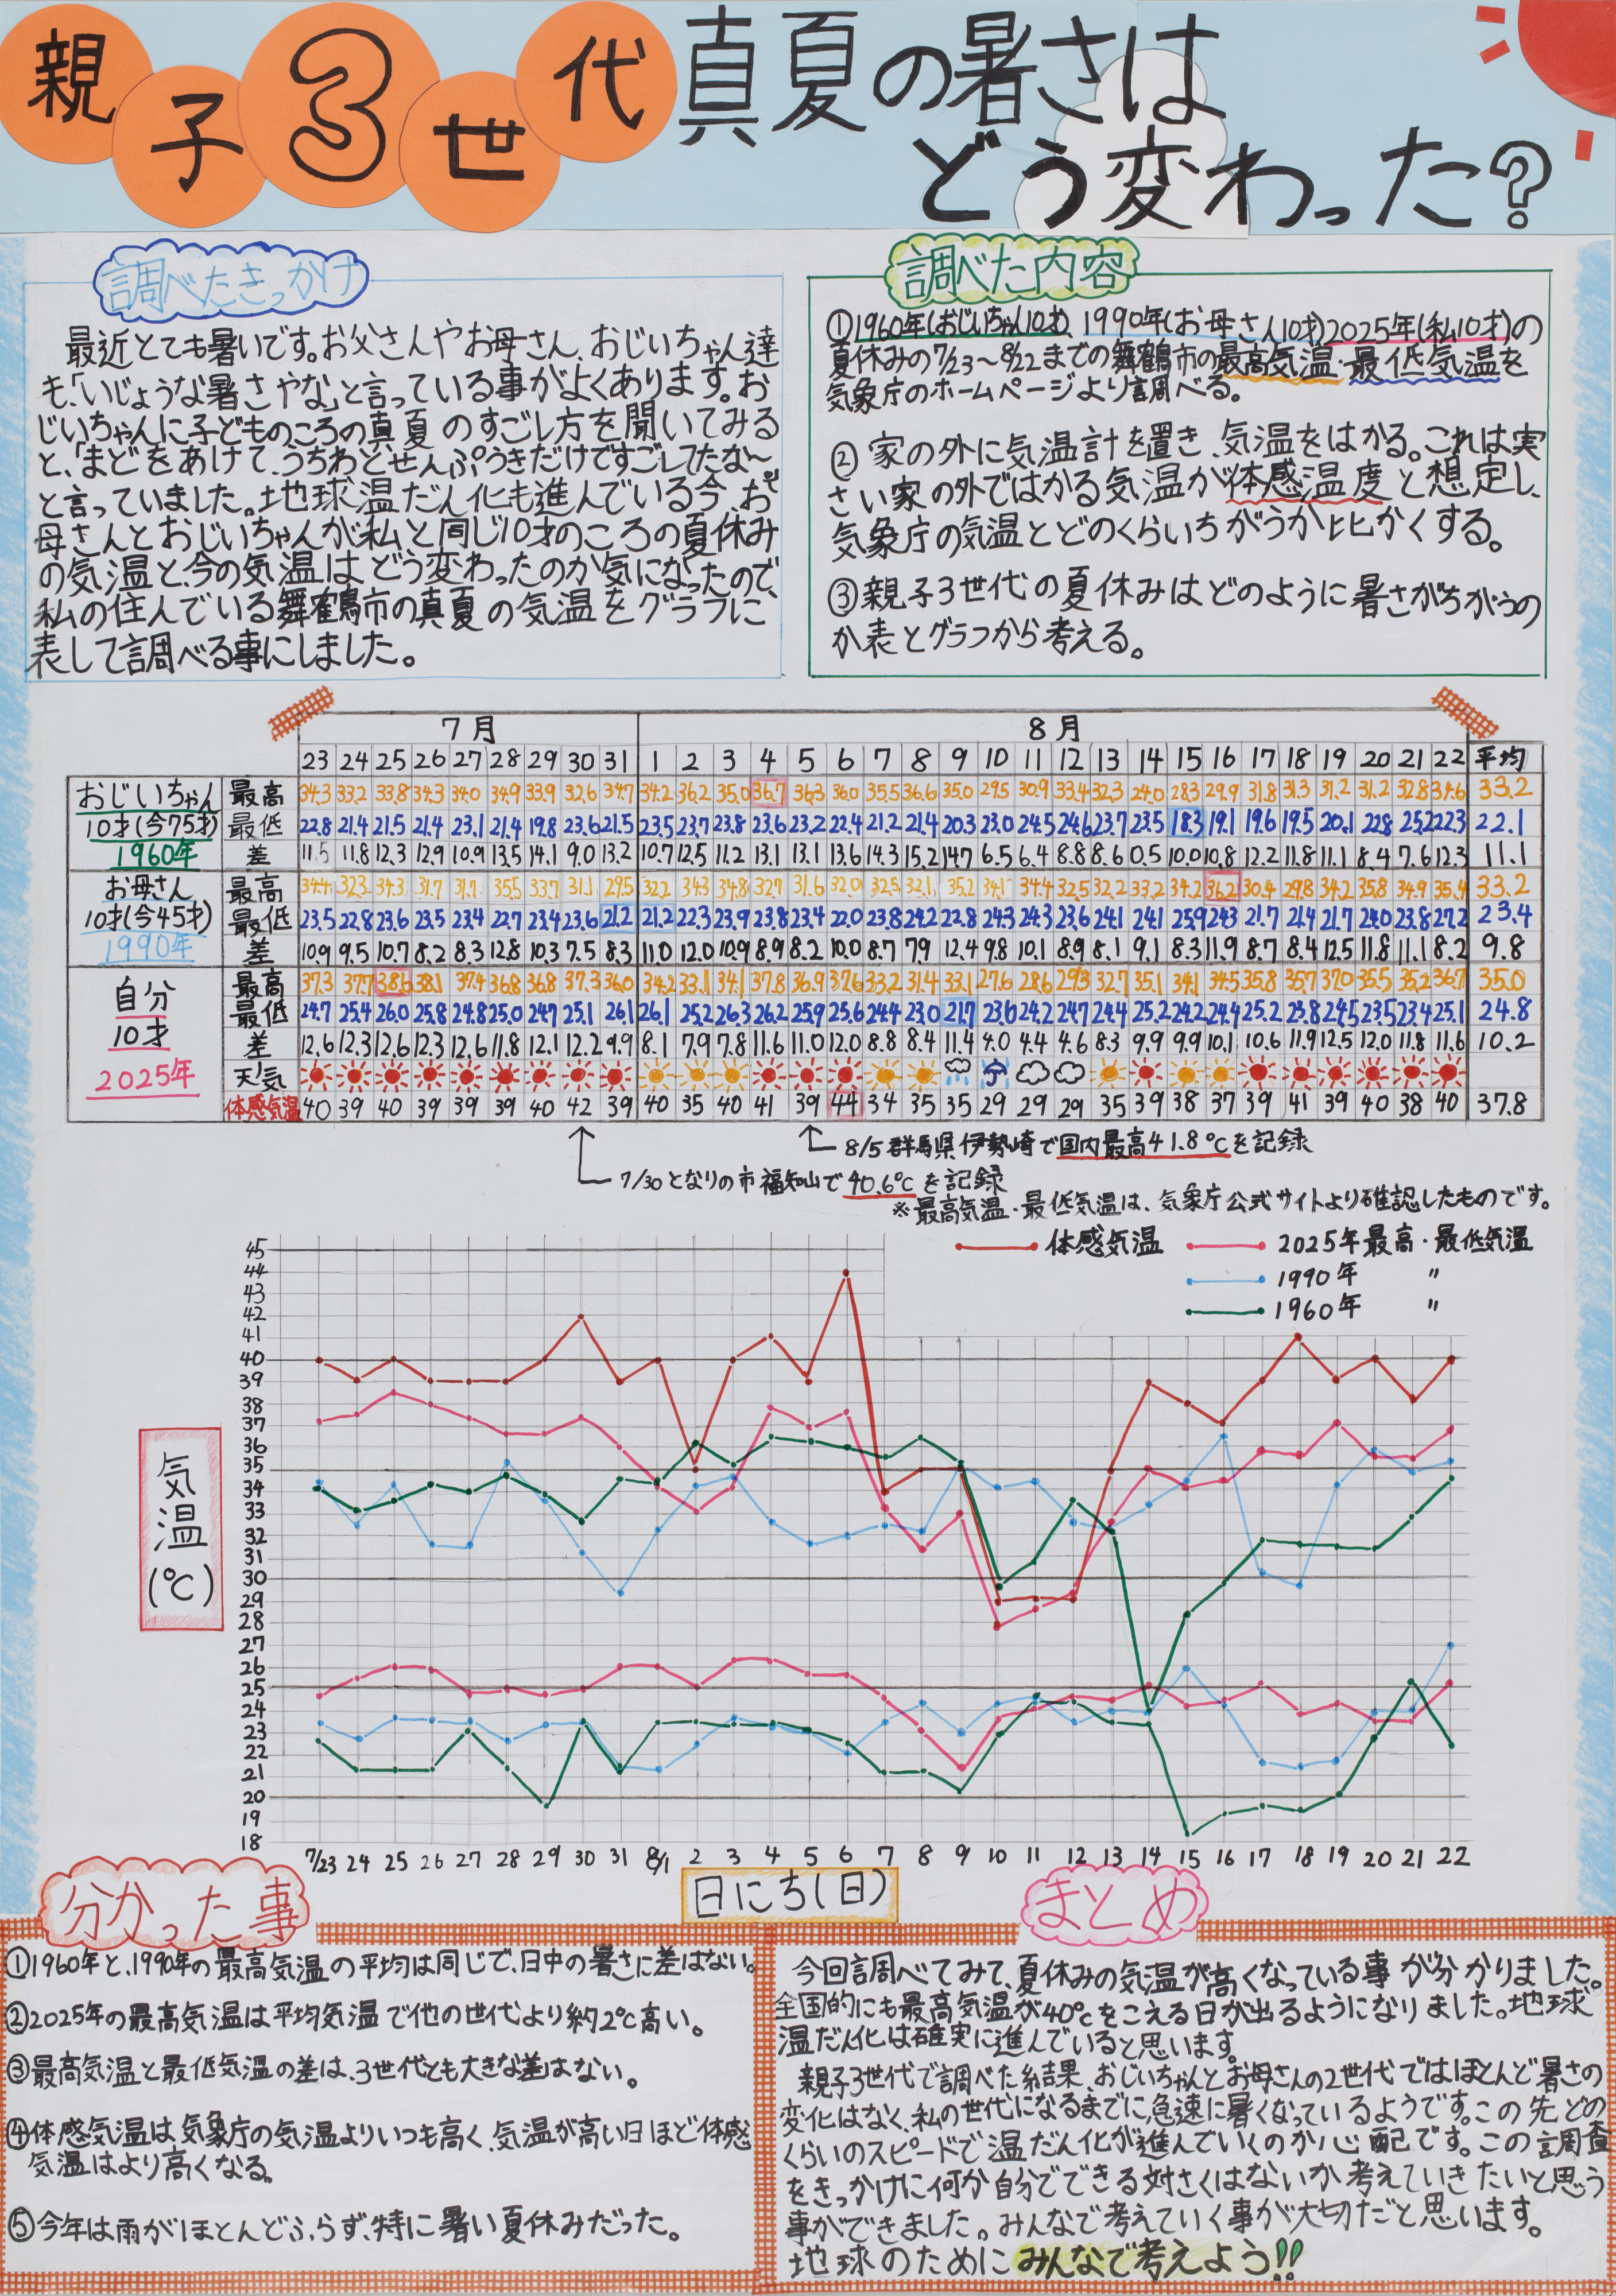 親子3世代 真夏の暑さは
どう変わった?
調べたきっかけ
最近とても暑いです。お父さんやお母さん、おじいちゃん達
も、「いじょうな暑さやな」と言っている事がよくあります。お
じいちゃんに子どものころの真夏のすごし方を聞いてみる
と、「まどをあけて、うちわとせんぷうきだけですごしてたな〜」
と言っていました。地球温だん化も進んでいる今、お
母さんとおじいちゃんが私と同じ10才のころの夏休み
の気温と、今の気温はどう変わったのか気になったので、
私の住んでいる舞鶴市の真夏の気温をグラフに
表して調べる事にしました。
調べた内容
①1960年(おじいちゃん10才)、1990年(お母さん10才)2025年(私10才)の
夏休みの7/23〜8/22までの舞鶴市の最高気温・最低気温を
気象庁のホームページより調べる。
②家の外に気温計を置き、気温をはかる。これは実
さい家の外ではかる気温が体感温度と想定し、
気象庁の気温とどのくらいちがうか比かくする。
③親子3世代の夏休みはどのように暑さがちがうの
か表とグラフから考える。
7月 8月
23 24 25 26 27 28 29 30 31 1 2 3 4 5 6 7 8 9 10 11 12 13 14 15 16 17 18 19 20 21 22 平均
おじいちゃん
10才(今75才)
1960年
最高 34.3 33.2 33.8 34.3 34.0 34.9 33.9 32.6 34.7 34.2 36.2 35.0 36.7 36.3 36.0 35.5 36.6 35.0 29.5 30.9 33.4 32.3 24.0 28.3 29.9 31.8 31.3 31.2 31.2 32.8 34.6 33.2
最低 22.8 21.4 21.5 21.4 23.1 21.4 19.8 23.6 21.5 23.5 23.7 23.8 23.6 23.2 22.4 21.2 21.4 20.3 23.0 24.5 24.6 23.7 23.5 18.3 19.1 19.6 19.5 20.1 22.8 25.2 22.3 22.1
差 11.5 11.8 12.3 12.9 10.9 13.5 14.1 9.0 13.2 10.7 12.5 11.2 13.1 13.1 13.6 14.3 15.2 14.7 6.5 6.4 8.8 8.6 0.5 10.0 10.8 12.2 11.8 11.1 8.4 7.6 12.3 11.1
お母さん
10才(今45才)
1990年
最高 34.4 32.3 34.3 31.7 31.7 35.5 33.7 31.1 29.5 32.2 34.3 34.8 32.7 31.6 32.0 32.5 32.1 35.2 34.1 34.4 32.5 32.2 33.2 34.2 36.2 30.4 29.8 34.2 35.8 34.9 35.4 33.2
最低 23.5 22.8 23.6 23.5 23.4 22.7 23.4 23.6 21.2 21.2 22.3 23.9 23.8 23.4 22.0 23.8 24.2 22.8 24.3 24.3 23.6 24.1 24.1 25.9 24.3 21.7 21.4 21.7 24.0 23.8 27.2 23.4
差 10.9 9.5 10.7 8.2 8.3 12.8 10.3 7.5 8.3 11.0 12.0 10.9 8.9 8.2 10.0 8.7 7.9 12.4 9.8 10.1 8.9 8.1 9.1 8.3 11.9 8.7 8.4 12.5 11.8 11.1 8.2 9.8
自分
10才
2025年
最高 37.3 37.7 38.6 38.1 37.4 36.8 36.8 37.3 36.0 34.2 33.1 34.1 37.8 36.9 37.6 33.2 31.4 33.1 27.6 28.6 29.3 32.7 35.1 34.1 34.5 35.8 35.7 37.0 35.5 35.2 36.7 35.0
最低 24.7 25.4 26.0 25.8 24.8 25.0 24.7 25.1 26.1 26.1 25.2 26.3 26.2 25.9 25.6 24.4 23.0 21.7 23.6 24.2 24.7 24.4 25.2 24.2 24.4 25.2 23.8 24.5 23.5 23.4 25.1 24.8
差 12.6 12.3 12.6 12.3 12.6 11.8 12.1 12.2 9.9 8.1 7.9 7.8 11.6 11.0 12.0 8.8 8.4 11.4 4.0 4.4 4.6 8.3 9.9 9.9 10.1 10.6 11.9 12.5 12.0 11.8 11.6 10.2
天気
体感気温 40 39 40 39 39 39 40 42 39 40 35 40 41 39 44 34 35 35 29 29 29 35 39 38 37 39 41 39 40 38 40 37.8
8/5 群馬県伊勢崎で国内最高41.8℃を記録
7/30 となりの市福知山で40.6℃を記録
※最高気温・最低気温は、気象庁公式サイトより確認したものです。
体感気温 2025年最高・最低気温
1990年 〃
1960年 〃
気温(℃)
45
44
43
42
41
40
39
38
37
36
35
34
33
32
31
30
29
28
27
26
25
24
23
22
21
20
19
18
7/23 24 25 26 27 28 29 30 31 8/1 2 3 4 5 6 7 8 9 10 11 12 13 14 15 16 17 18 19 20 21 22
日にち(日)
分かった事
①1960年と、1990年の最高気温の平均は同じで、日中の暑さに差はない。
②2025年の最高気温は平均気温で他の世代より約2℃高い。
③最高気温と最低気温の差は、3世代とも大きな差はない。
④体感気温は気象庁の気温よりいつも高く、気温が高い日ほど体感
気温はより高くなる。
⑤今年は雨がほとんどふらず、特に暑い夏休みだった。
まとめ
今回調べてみて、夏休みの気温が高くなっている事が分かりました。
全国的にも最高気温が40℃をこえる日が出るようになりました。地球
温だん化は確実に進んでいると思います。
親子3世代で調べた結果、おじいちゃんとお母さんの2世代ではほとんど暑さの
変化はなく、私の世代になるまでに急速に暑くなっているようです。この先どの
くらいのスピードで温だん化が進んでいくのか心配です。この調査
をきっかけに何か自分でできる対さくはないか考えていきたいと思う
事ができました。みんなで考えていく事が大切だと思います。
地球のためにみんなで考えよう!!